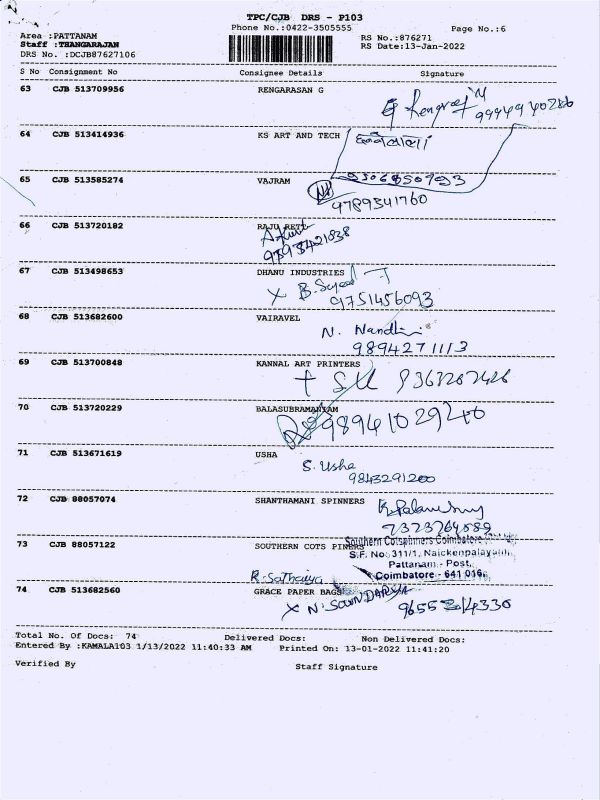 TPC/CJB DRS - P103
Phone No.:0422-3505555
Page No.:6
Area :PATTANAM
RS No.:876271
Staff :THANGARAJAN
RS Date:13-Jan-2022
DRS No. :DCJB87627106
S No Consignment No Consignee Details Signature
63 CJB 513709956 RENGARASAN G
9994940286
64 CJB 513414936 KS ART AND TECH
65 CJB 513585274 VAJRAM
9789341760
66 CJB 513720182 RAJU RETT
67 CJB 513498653 DHANU INDUSTRIES
X B.
9751456093
68 CJB 513682600 VAIRAVEL
N. Nandhini
9894271113
69 CJB 513700848 KANNAL ART PRINTERS
70 CJB 513720229 BALASUBRAMANIAM
98941029240
71 CJB 513671619 USHA
S. Usha
9843291200
72 CJB 88057074 SHANTHAMANI SPINNERS
7323764889
73 CJB 88057122 SOUTHERN COTS PINERS
Southern Cotspinners Coimbatore
S.F. No. 311/1, Naickenpalayam,
Pattanam - Post,
Coimbatore - 641 016.
R. Sathiya
74 CJB 513682560 GRACE PAPER BAGS
X N. SOUNDARYA 9655214330
Total No. Of Docs: 74 Delivered Docs: Non Delivered Docs:
Entered By :KAMALA103 1/13/2022 11:40:33 AM Printed On: 13-01-2022 11:41:20
Verified By Staff Signature